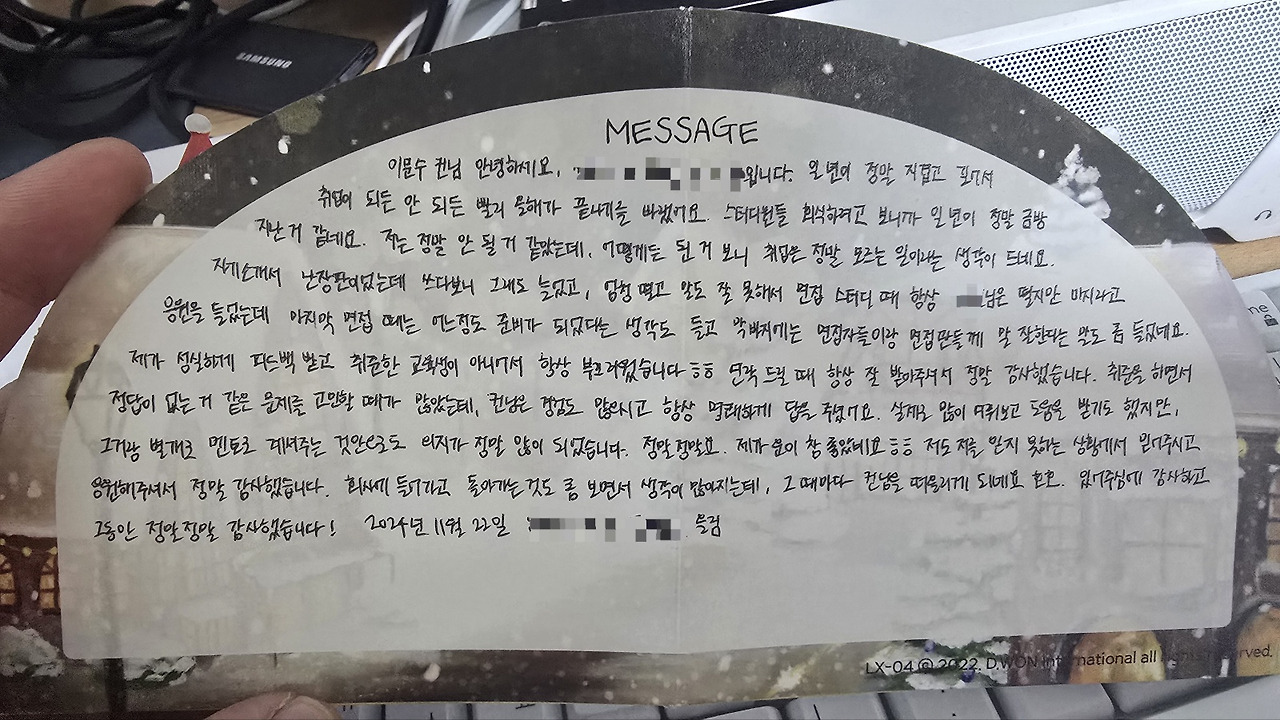 SAMSUNG
MESSAGE
이문수 컨님 안녕하세요, 입니다. 일 년이 정말 지겹고 길어서
취업이 되든 안 되든 빨리 올해가 끝나기를 바랬어요. 스터디원들 회식하려고 보니까 일 년이 정말 금방
지난 거 같네요. 저는 정말 안 될 거 같았는데, 어떻게든 된 거 보니 취업은 정말 모르는 일이라는 생각이 드네요.
자기소개서 난장판이었는데 쓰다보니 그래도 늘었고, 엄청 떨고 말도 잘 못해서 면접 스터디 때 항상 님은 떨지만 마시라고
응원을 들었는데 마지막 면접 때는 어느정도 준비가 되었다는 생각도 들고 막바지에는 면접자들이랑 면접관들께 말 잘한다는 말도 좀 들었네요.
제가 성실하게 피드백 받고 취준한 교육생이 아니어서 항상 부끄러웠습니다ㅎㅎ 연락 드릴 때 항상 잘 받아주셔서 정말 감사했습니다. 취준을 하면서
정답이 없는 거 같은 문제를 고민할 때가 많았는데, 컨님은 경험도 많으시고 항상 명쾌하게 답을 주셨어요. 실제로 많이 여쭤보고 도움을 받기도 했지만,
그거랑 별개로 멘토로 계셔주는 것만으로도 의지가 정말 많이 되었습니다. 정말정말요. 제가 운이 참 좋았네요ㅎㅎ 저도 저를 믿지 못하는 상황에서 믿어주시고
응원해주셔서 정말 감사했습니다. 회사에 들어가고 돌아가는것도 좀 보면서 생각이 많아지는데, 그때마다 컨님을 떠올리게 되네요 ㅎㅎ. 있어주심에 감사하고
그동안 정말정말 감사했습니다! 2024년 11월 22일 올림
LX-04 @ 2022. D.WON International all rights reserved.